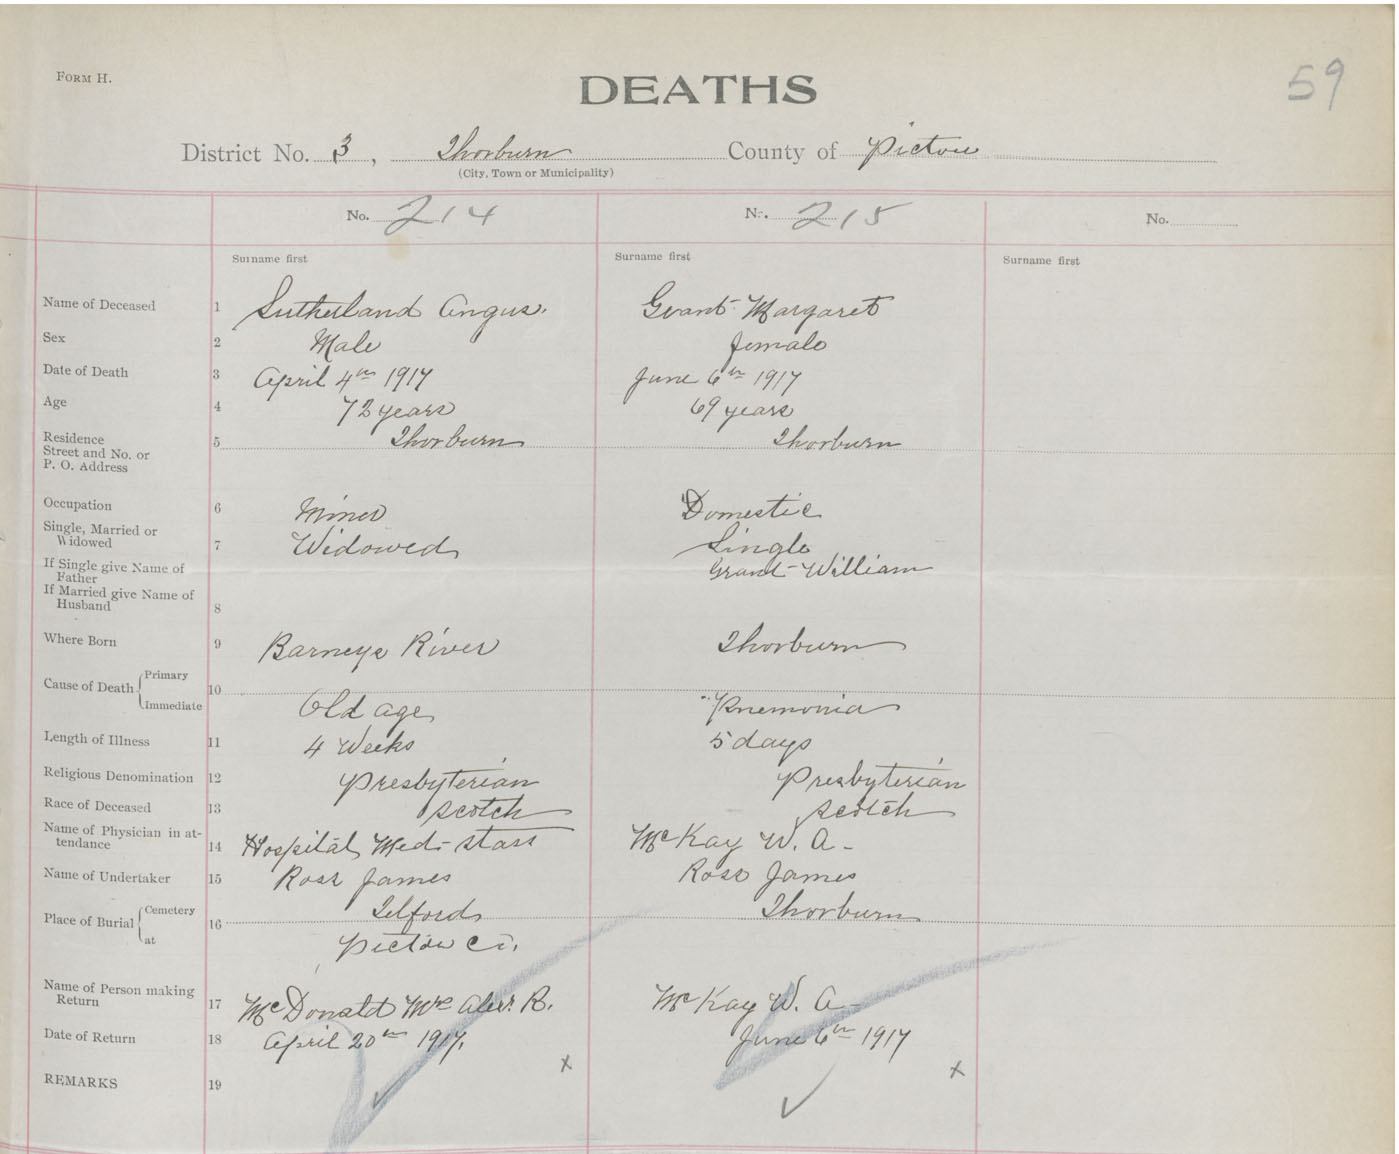 FORM H.
DEATHS
59
District No. 3, Thorburn County of Pictou
(City, Town or Municipality)
No. 214 No. 215 No.
Surname first Surname first Surname first
Name of Deceased 1 Sutherland Angus. Grant Margaret
Sex 2 Male female
Date of Death 3 April 4th 1917 June 6th 1917
Age 4 72 years 69 years
Residence 5 Thorburn Thorburn
Street and No. or
P. O. Address
Occupation 6 Miner Domestic
Single, Married or
Widowed 7 Widowed Single
If Single give Name of
Father Grant William
If Married give Name of
Husband 8
Where Born 9 Barneys River Thorburn
Cause of Death Primary
10
Immediate Old age Pnemonia
Length of Illness 11 4 Weeks 5 days
Religious Denomination 12 Presbyterian Presbyterian
Race of Deceased 13 Scotch Scotch
Name of Physician in at-
tendance 14 Hospital Med. Staff McKay W. A.
Name of Undertaker 15 Ross James Ross James
Place of Burial Cemetery 16 Telford Thorburn
at Pictou Co.
Name of Person making
Return 17 McDonald Mrs Alex. R. McKay W. A.
Date of Return 18 April 20th 1917. June 6th 1917
x x
REMARKS 19